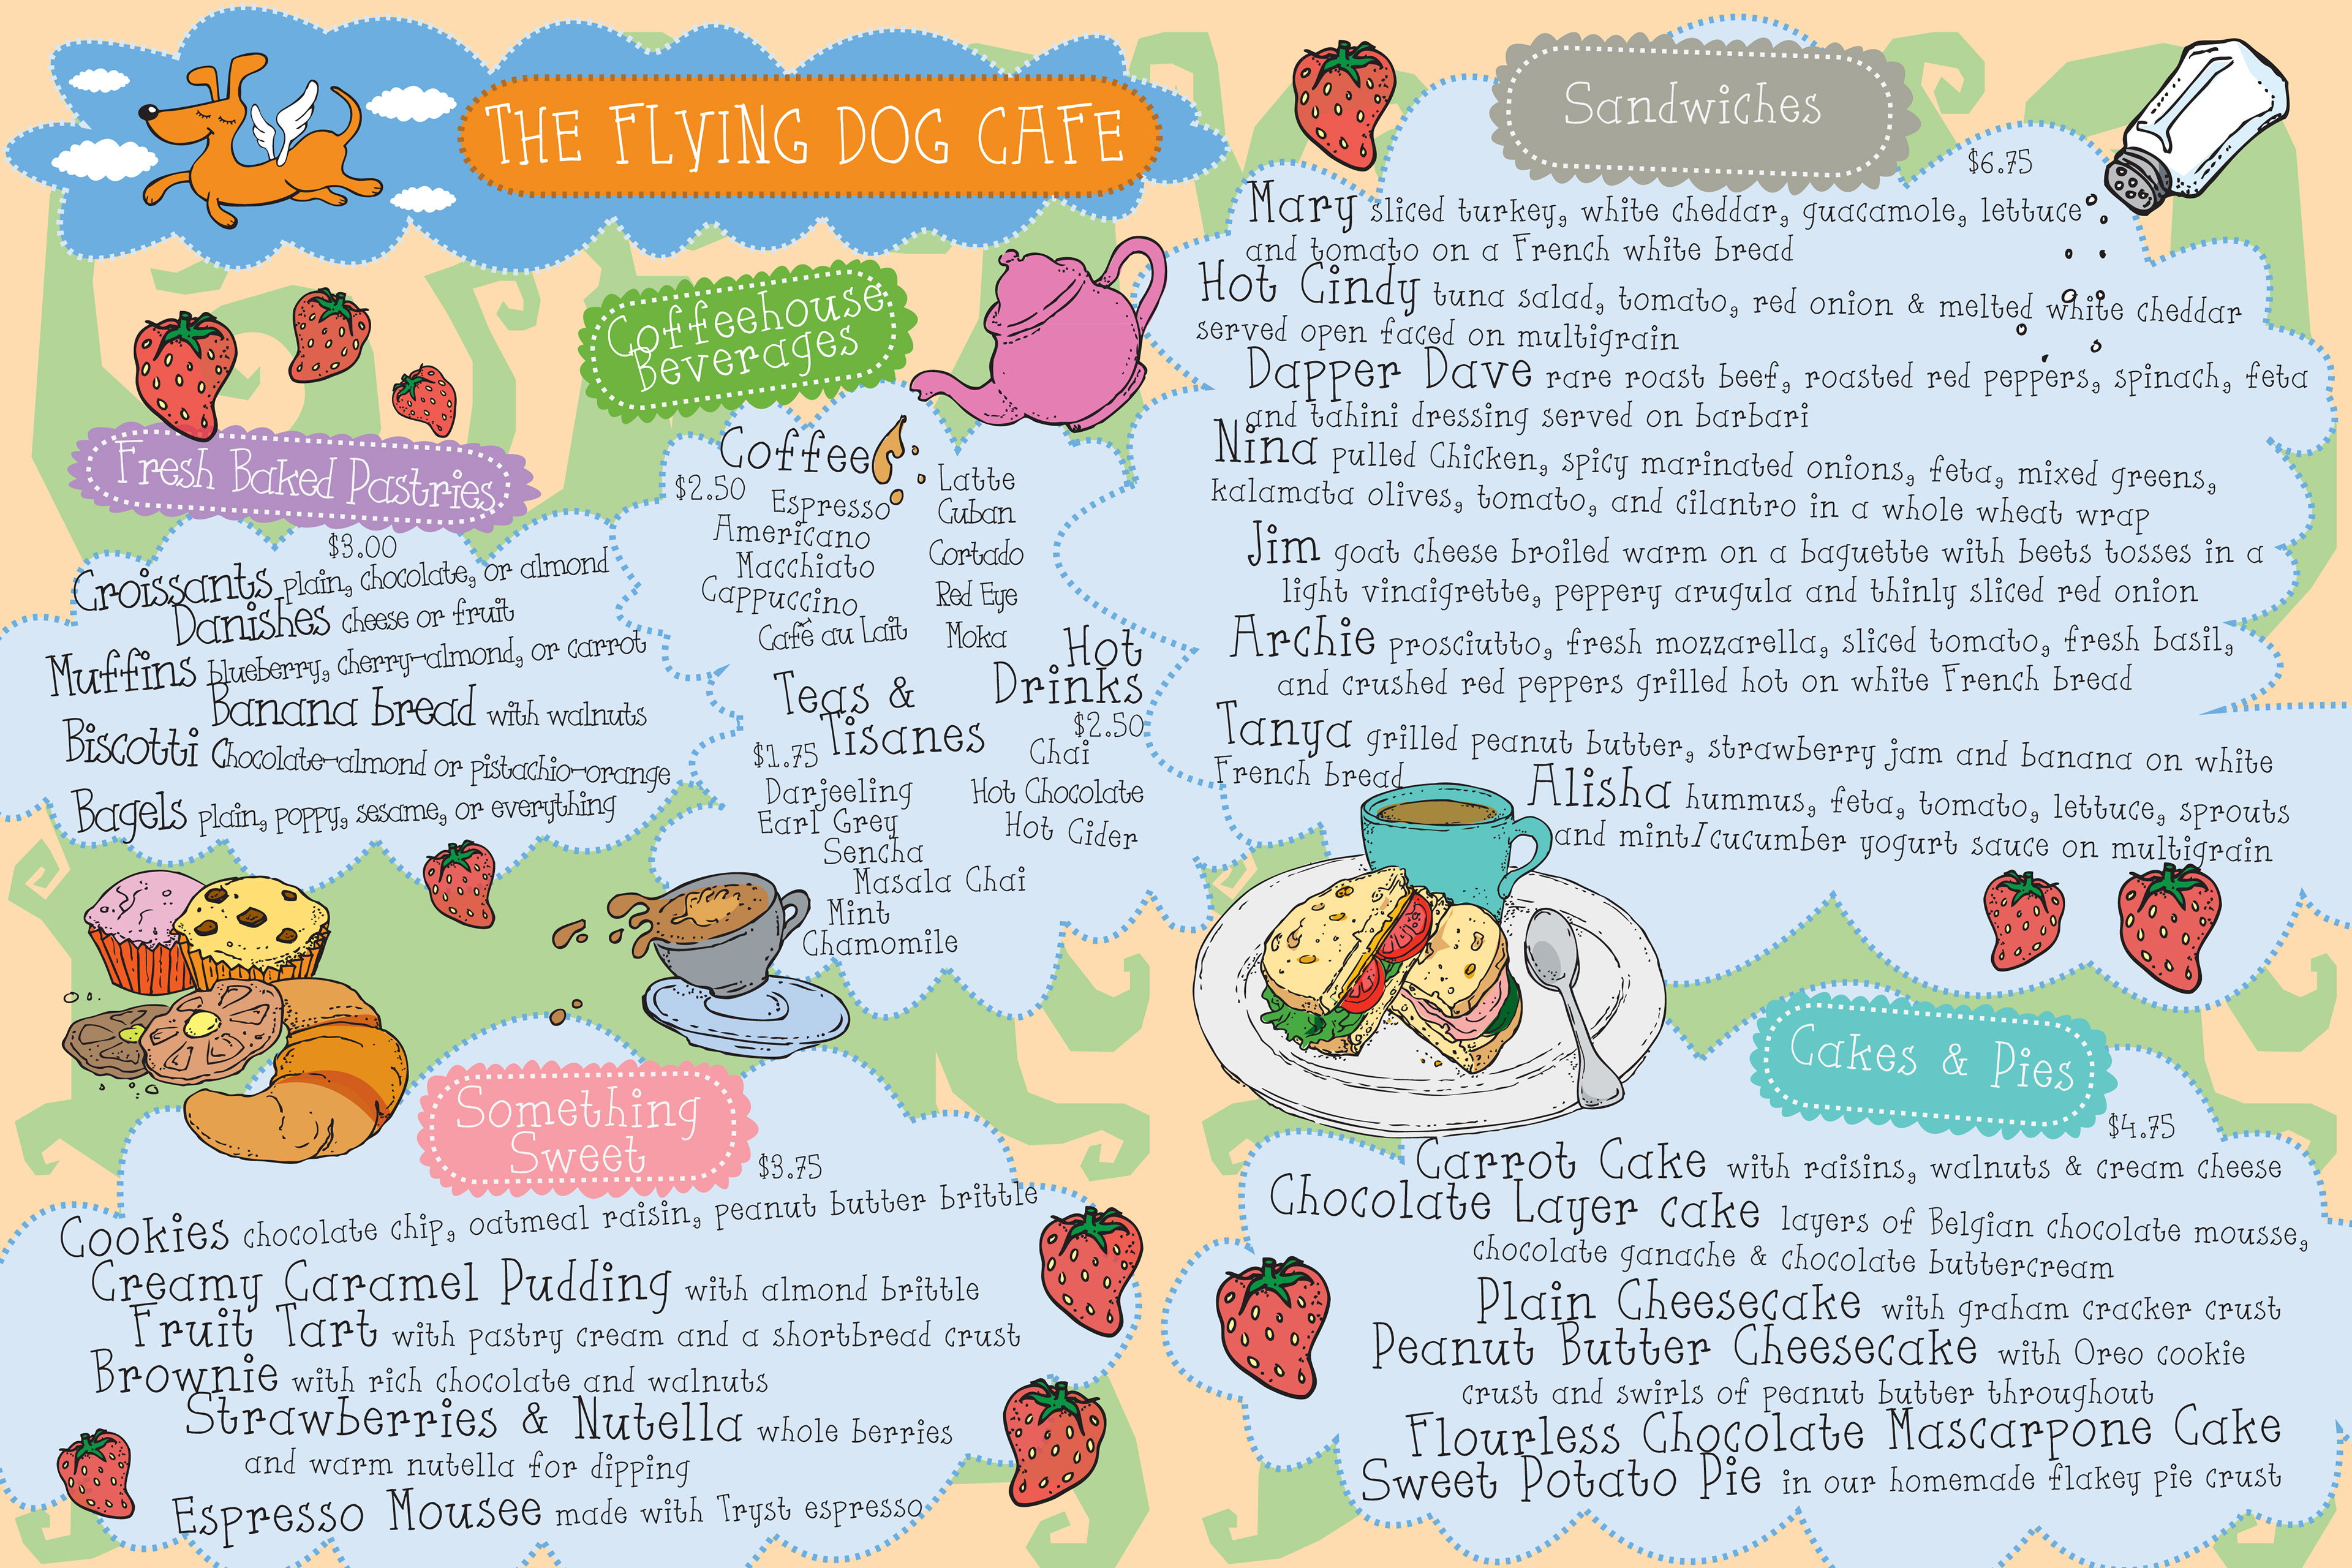 THE FLYING DOG CAFE
Fresh Baked Pastries
$3.00
Croissants plain, chocolate, or almond
Danishes cheese or fruit
Muffins blueberry, cherry-almond, or carrot
Banana bread with walnuts
Biscotti Chocolate-almond or pistachio-orange
Bagels plain, poppy, sesame, or everything
Coffeehouse
Beverages
Coffee
$2.50
Espresso
Americano
Macchiato
Cappuccino
Café au Lait
Latte
Cuban
Cortado
Red Eye
Moka
Teas &
Tisanes
$1.75
Darjeeling
Earl Grey
Sencha
Masala Chai
Mint
Chamomile
Hot
Drinks
$2.50
Chai
Hot Chocolate
Hot Cider
Something
Sweet
$3.75
Cookies chocolate chip, oatmeal raisin, peanut butter brittle
Creamy Caramel Pudding with almond brittle
Fruit Tart with pastry cream and a shortbread crust
Brownie with rich chocolate and walnuts
Strawberries & Nutella whole berries
and warm nutella for dipping
Espresso Mousee made with Tryst espresso
Sandwiches
$6.75
Mary sliced turkey, white cheddar, guacamole, lettuce
and tomato on a French white bread
Hot Cindy tuna salad, tomato, red onion & melted white cheddar
served open faced on multigrain
Dapper Dave rare roast beef, roasted red peppers, spinach, feta
and tahini dressing served on barbari
Nina pulled Chicken, spicy marinated onions, feta, mixed greens,
kalamata olives, tomato, and cilantro in a whole wheat wrap
Jim goat cheese broiled warm on a baguette with beets tosses in a
light vinaigrette, peppery arugula and thinly sliced red onion
Archie prosciutto, fresh mozzarella, sliced tomato, fresh basil,
and crushed red peppers grilled hot on white French bread
Tanya grilled peanut butter, strawberry jam and banana on white
French bread
Alisha hummus, feta, tomato, lettuce, sprouts
and mint/cucumber yogurt sauce on multigrain
Cakes & Pies
$4.75
Carrot Cake with raisins, walnuts & cream cheese
Chocolate Layer cake layers of Belgian chocolate mousse,
chocolate ganache & chocolate buttercream
Plain Cheesecake with graham cracker crust
Peanut Butter Cheesecake with Oreo cookie
crust and swirls of peanut butter throughout
Flourless Chocolate Mascarpone Cake
Sweet Potato Pie in our homemade flakey pie crust